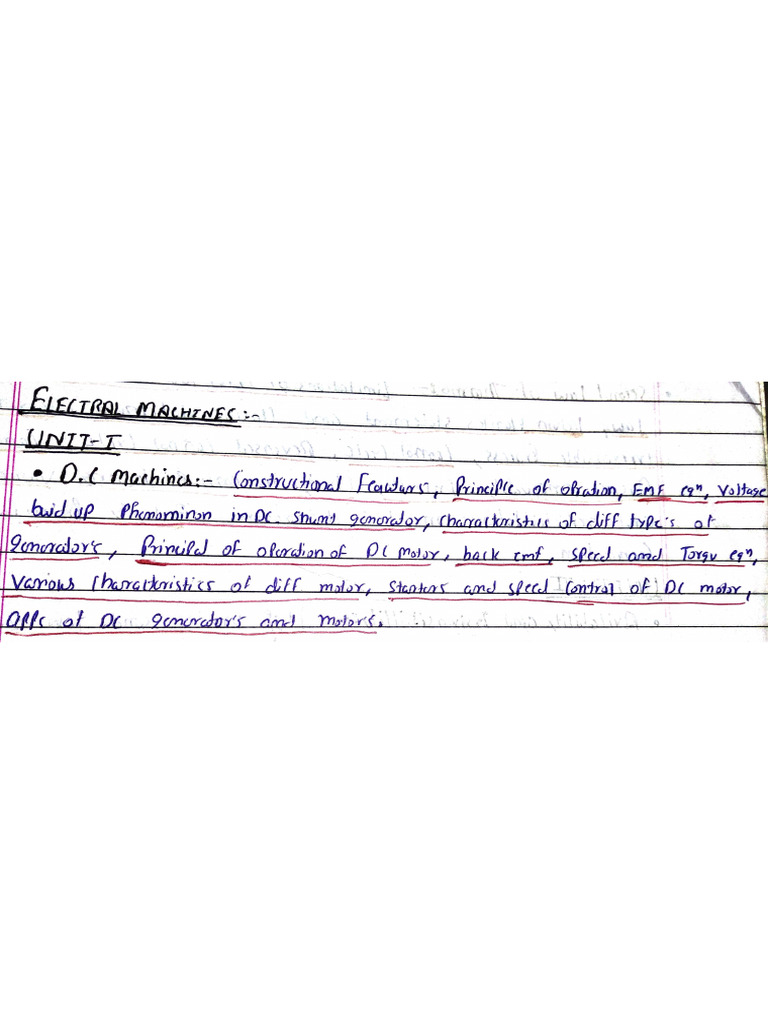 ELECTRAL MACHINES:-
UNIT-I
• D.C machines:- Constructional Featurs, Principle of opration, EMF eqn, Voltage
buid up Phenominon in DC. shunt generator, characteristics of diff type's of
generator's, Principal of operation of DC Motor, back emf, speed and Torqu eqn,
Various Characteristics of diff motor, Starters and speed Control of DC motor,
APPc of DC generator's and motors.